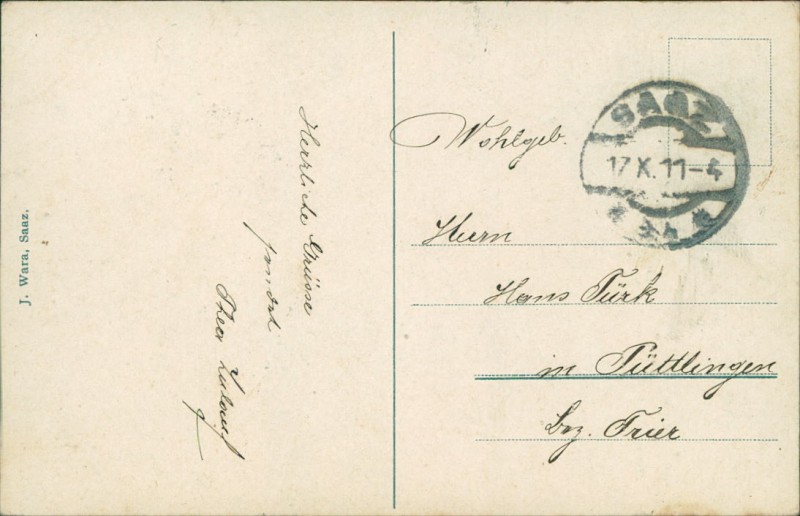 J. Wara, Saaz.
Herzliche Grüsse
sendet
SAAZ
17 X. 11-4
* 2a *
Wohlgeb.
Herrn
Hans Türk
in Püttlingen
Bez. Trier